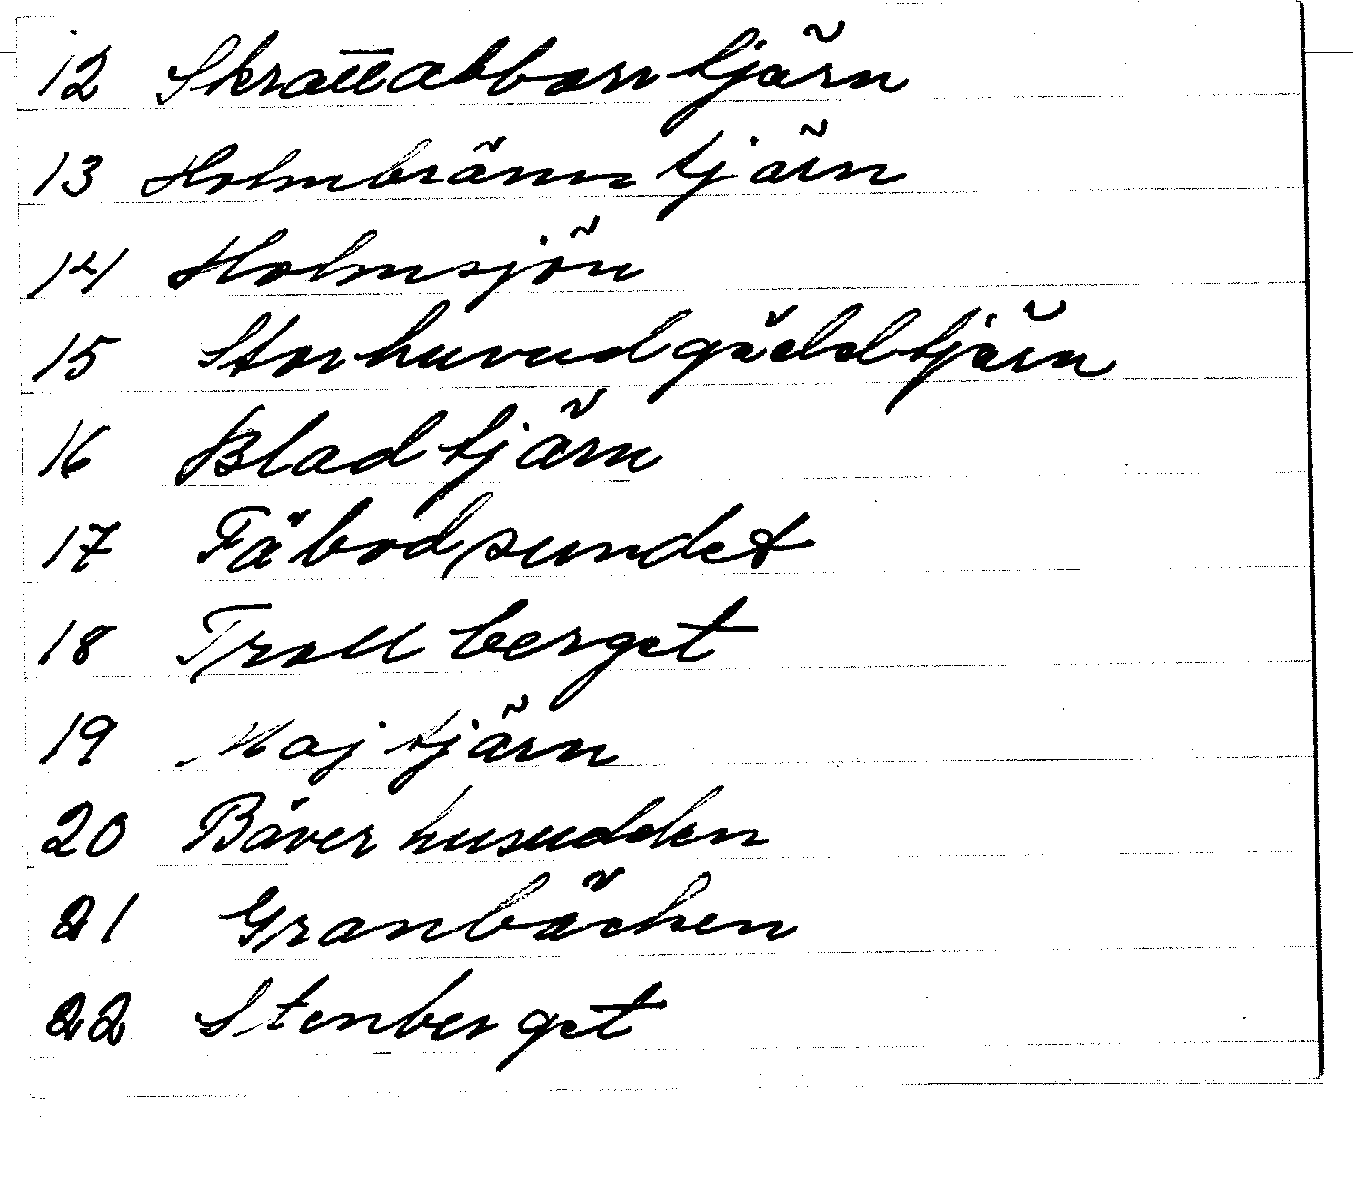 12 Skrattabborrtjärn
13 Holmbränntjärn
14 Holmsjön
15 Storhuvudgäddtjärn
16 Bladtjärn
17 Fäbodsundet
18 Trollberget
19 Majtjärn
20 Bäverhusudden
21 Granbäcken
22 Stenberget